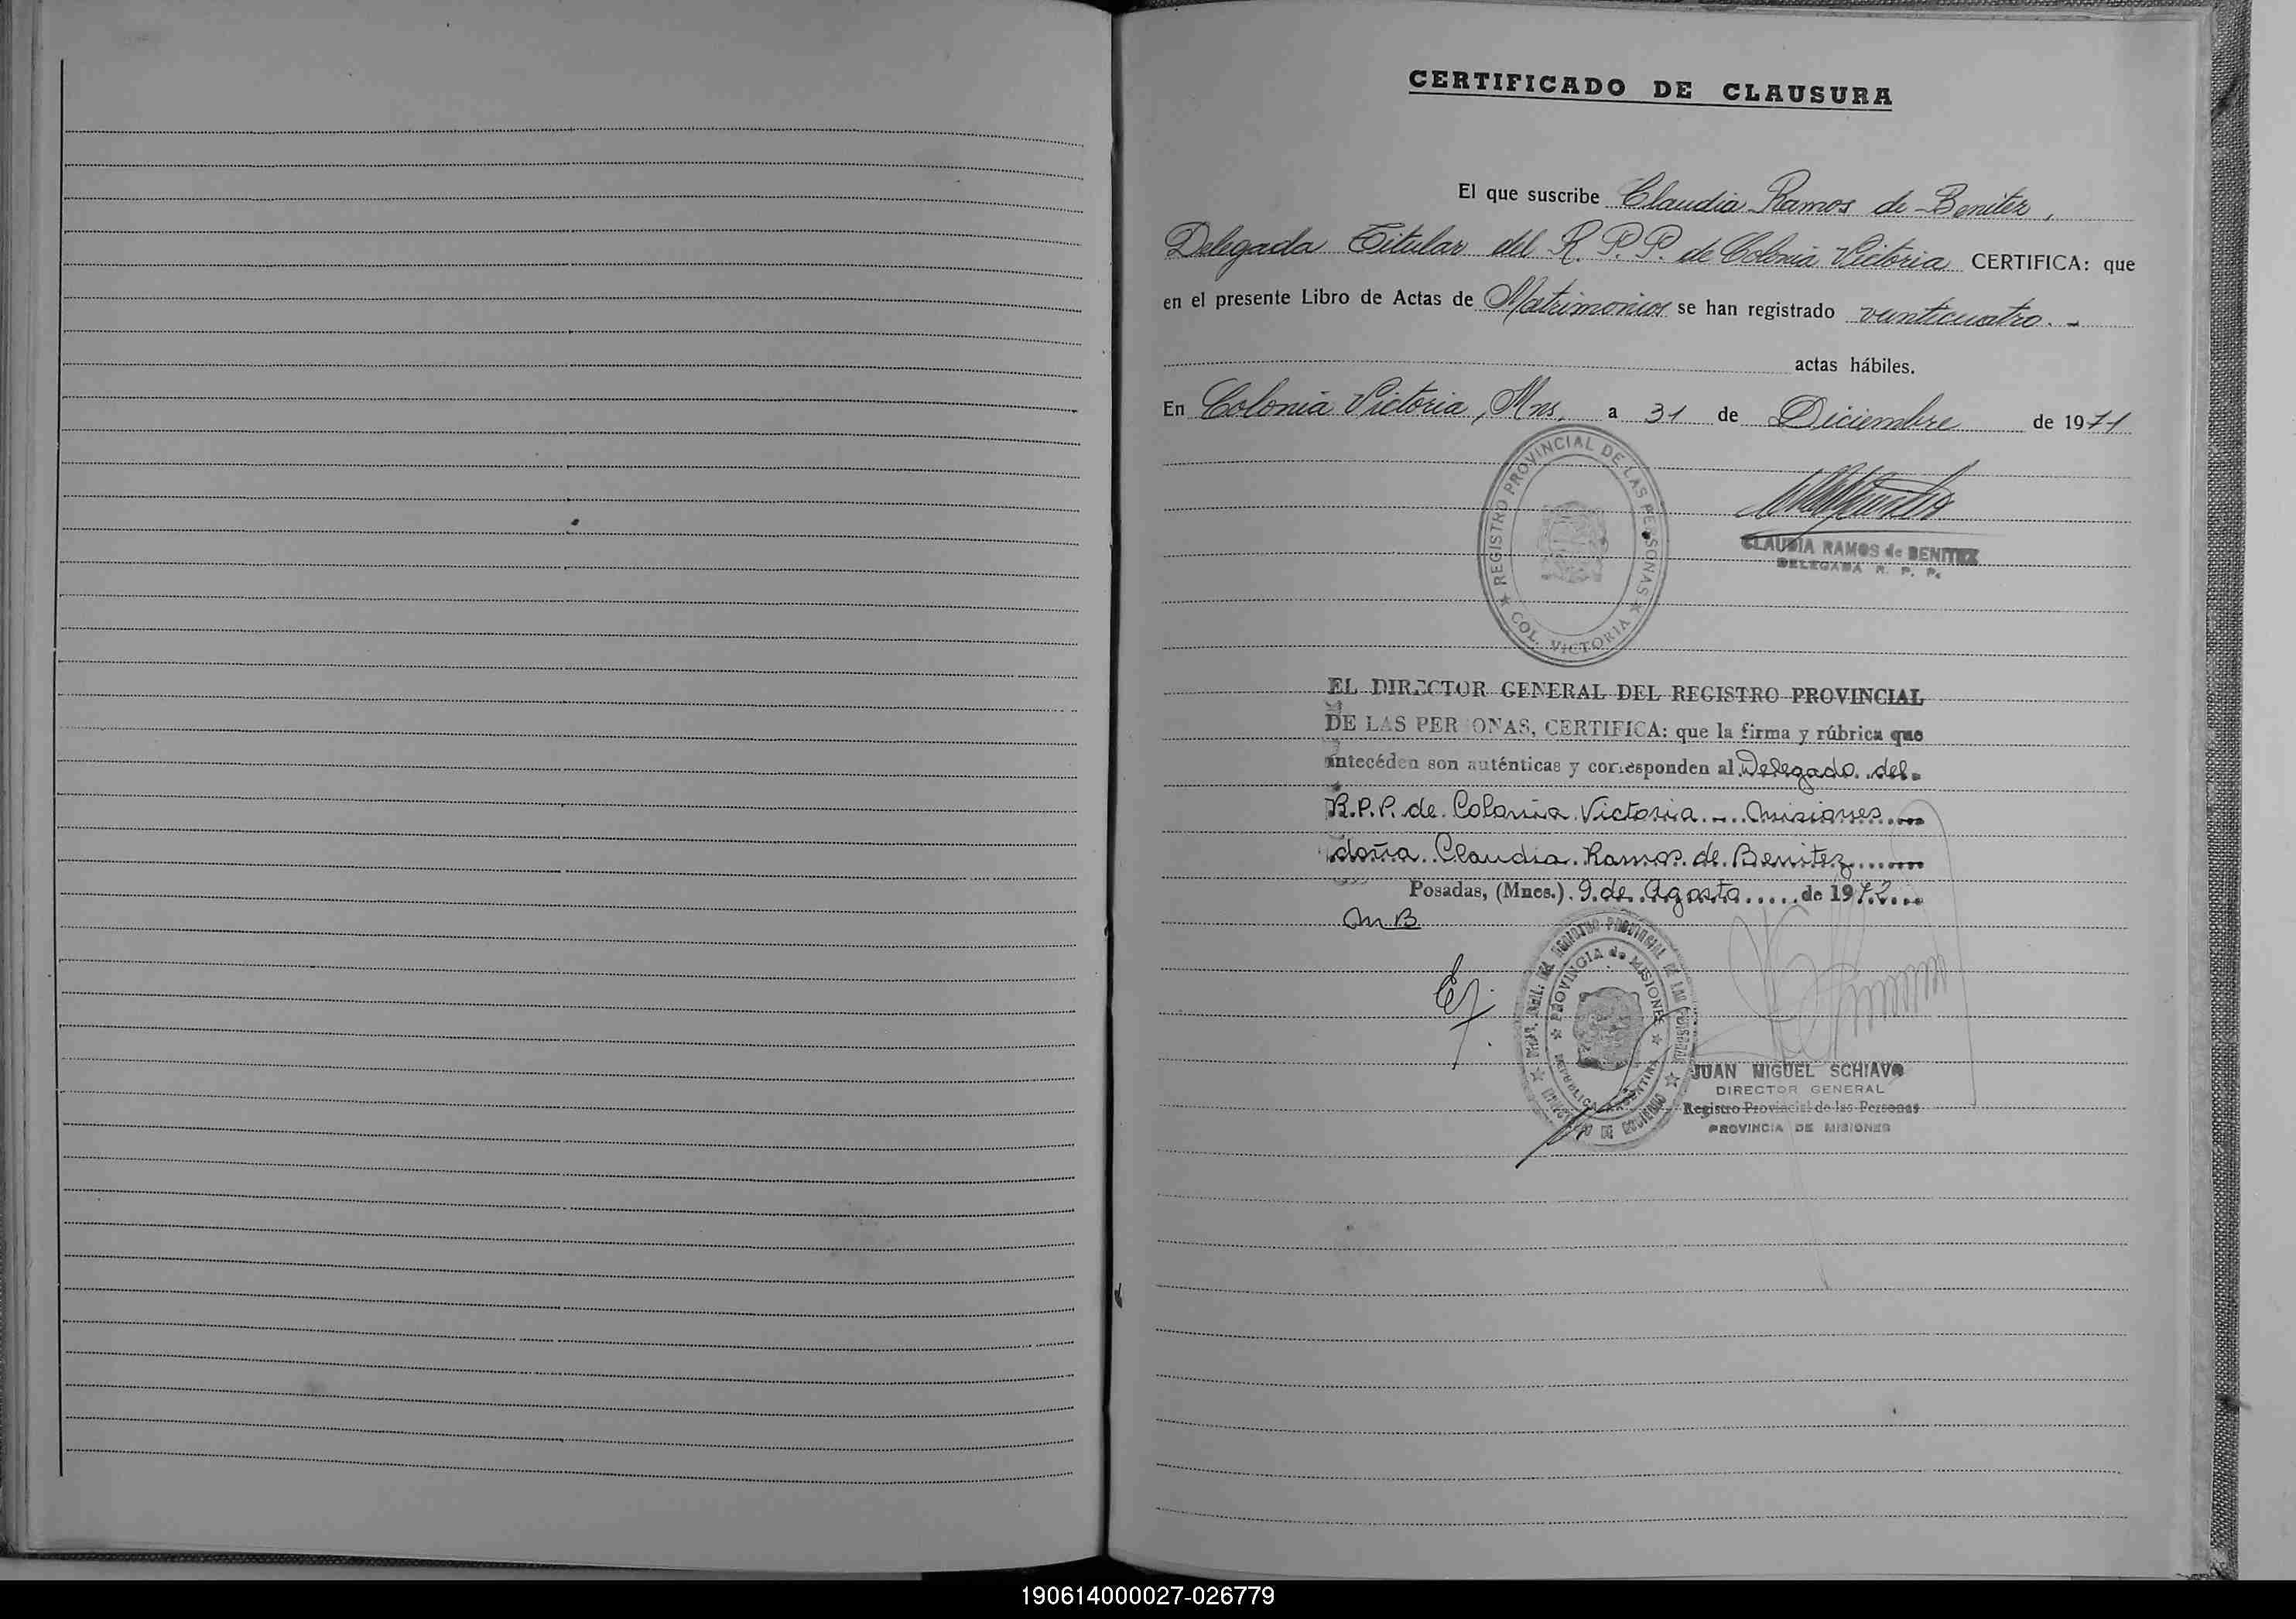 CERTIFICADO DE CLAUSURA
El que suscribe Claudia Ramos de Benitez,
Delegada Titular del R. P. P. de Colonia Victoria CERTIFICA: que
en el presente Libro de Actas de Matrimonios se han registrado veinticuatro. -
actas hábiles.
En Colonia Victoria, Mns. a 31 de Diciembre de 1971
REGISTRO PROVINCIAL DE LAS PERSONAS
COL. VICTORIA
CLAUDIA RAMOS de BENITEZ
DELEGADA R. P. P.
EL DIRECTOR GENERAL DEL REGISTRO PROVINCIAL
DE LAS PERSONAS, CERTIFICA: que la firma y rúbrica que
antecéden son auténticas y corresponden al Delegado del
R.P.P. de Colonia Victoria - Misiones
doña Claudia Ramos de Benitez
Posadas, (Mnes.) 9 de Agosto de 1972
m B
PROVINCIA de MISIONES
REPUBLICA ARGENTINA
JUAN MIGUEL SCHIAVO
DIRECTOR GENERAL
Registro Provincial de las Personas
PROVINCIA DE MISIONES
190614000027-026779